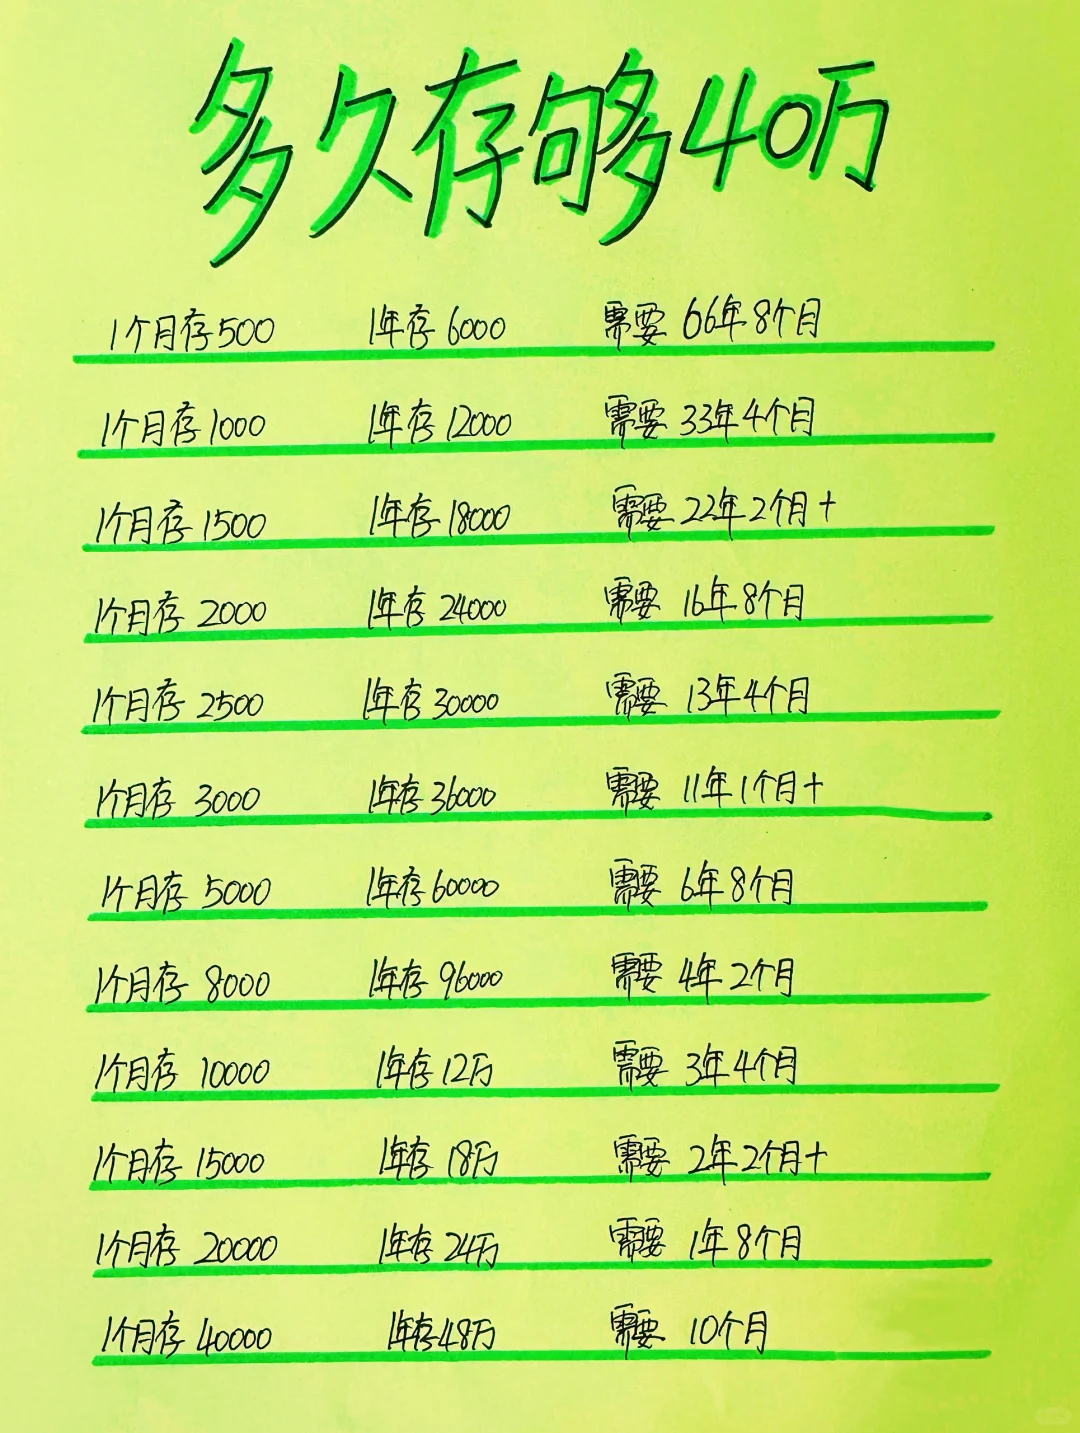 多久存够40万
1个月存500 1年存6000 需要 66年8个月
1个月存1000 1年存12000 需要 33年4个月
1个月存1500 1年存18000 需要 22年2个月+
1个月存 2000 1年存 24000 需要 16年8个月
1个月存 2500 1年存 30000 需要 13年4个月
1个月存 3000 1年存 36000 需要 11年1个月+
1个月存 5000 1年存 60000 需要 6年8个月
1个月存 8000 1年存 96000 需要 4年2个月
1个月存 10000 1年存 12万 需要 3年4个月
1个月存 15000 1年存 18万 需要 2年2个月+
1个月存 20000 1年存 24万 需要 1年8个月
1个月存 40000 1年存48万 需要 10个月